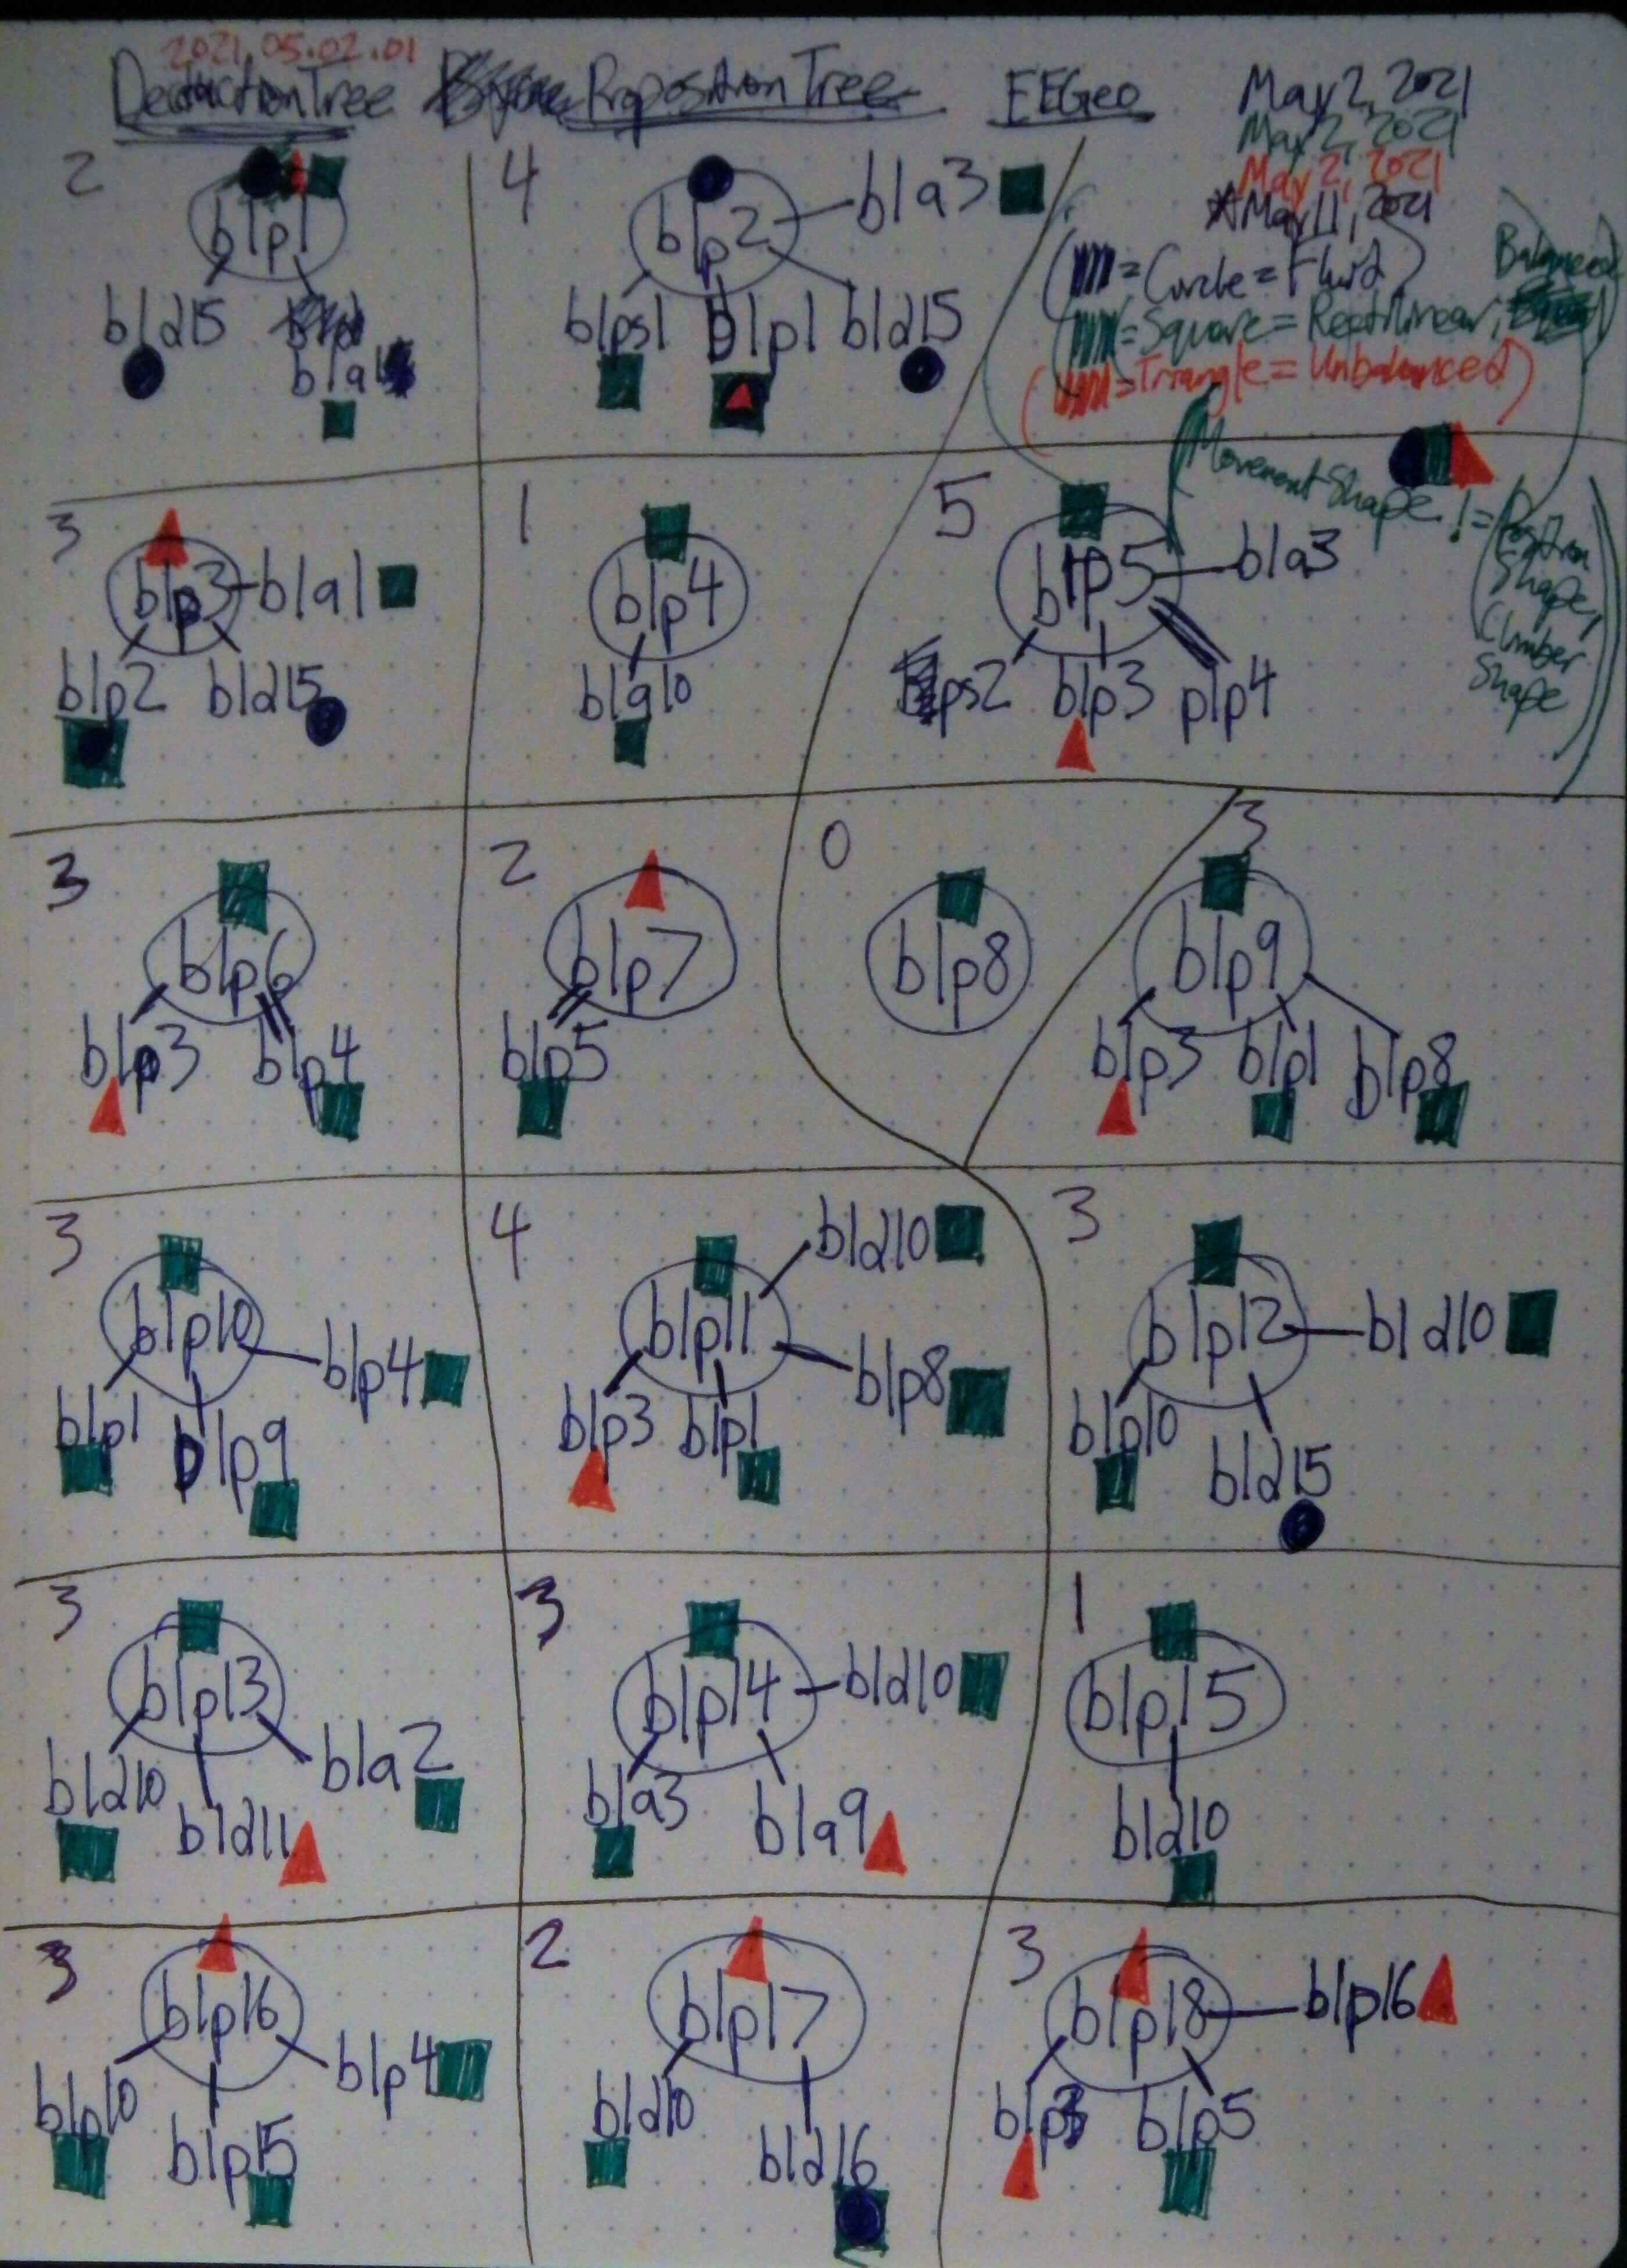 2021.05.02.01
Deduction Tree Proposition Tree EEGeo May 2, 2021
May 2, 2021
May 2, 2021
*May 11, 2021
= Circle = Fluid
= Square = Rectilinear, Balanced
= Triangle = Unbalanced
Movement Shape != Position Shape, Climber Shape
2
b1p1
b1d15
b1a1
4
b1p2
b1a3
b1ps1 b1p1 b1d15
3
b1p3 b1a1
b1p2 b1d15
1
b1p4
b1a10
5
b1p5 b1a3
ps2 b1p3 p1p4
3
b1p6
b1p3 b1p4
2
b1p7
b1p5
0
b1p8
3
b1p9
b1p3 b1p1 b1p8
3
b1p10
b1p4
b1p1 b1p9
4
b1d10
b1p11
b1p8
b1p3 b1p1
3
b1p12 b1d10
b1p10
b1d15
3
b1p13
b1d10 b1d11 b1a2
3
b1p14 b1d10
b1a3 b1a9
1
b1p15
b1d10
3
b1p16
b1p4
b1p10 b1p15
2
b1p17
b1d10 b1d16
3
b1p18 b1p16
b1p3 b1p5